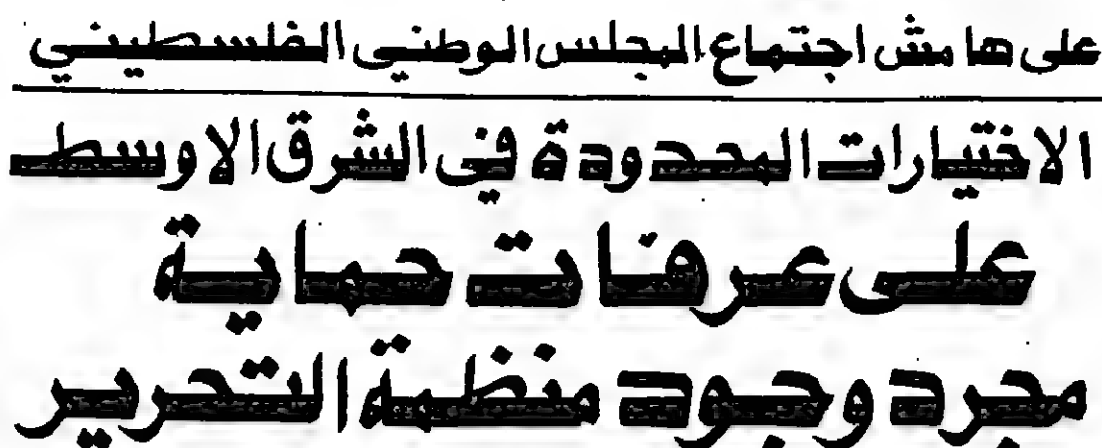 على هامش اجتماع المجلس الوطني الفلسطيني
الاختيارات المحدودة في الشرق الاوسط
على عرفات حماية
مجرد وجود منظمة التحرير